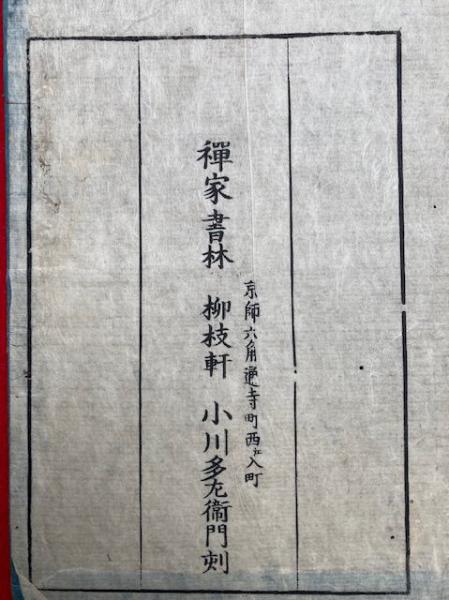 京師六角通寺町西江入町
禪家書林 柳枝軒 小川多左衞門刻